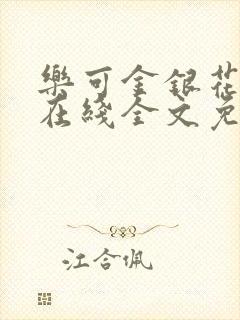 樂可金銀花
在綫全文免
江合佩